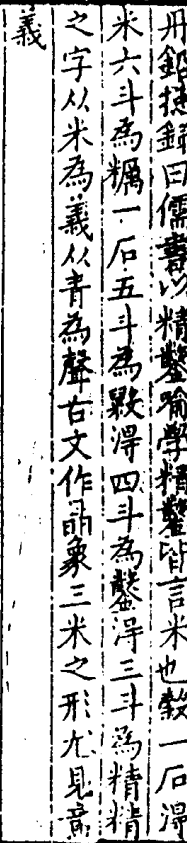 丹鉛摠録曰儒書以精鑿喻學精鑿皆言米也穀一石得
米六斗為糲一石五斗為毇得四斗為鑿得三斗為精精
之字从米為義从青為聲古文作晶象三米之形尤見意
義